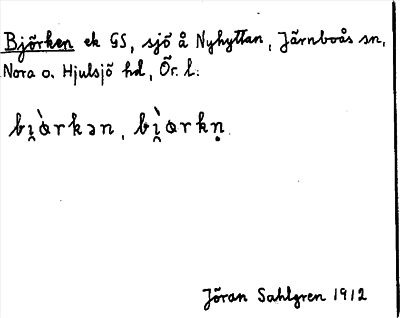 Björken ek GS, sjö å Nyhyttan, Järnboås sn,
Nora o. Hjulsjö hd, Ör. l.
bi̯òrkən, bi̯òrkn̥.
Jöran Sahlgren 1912